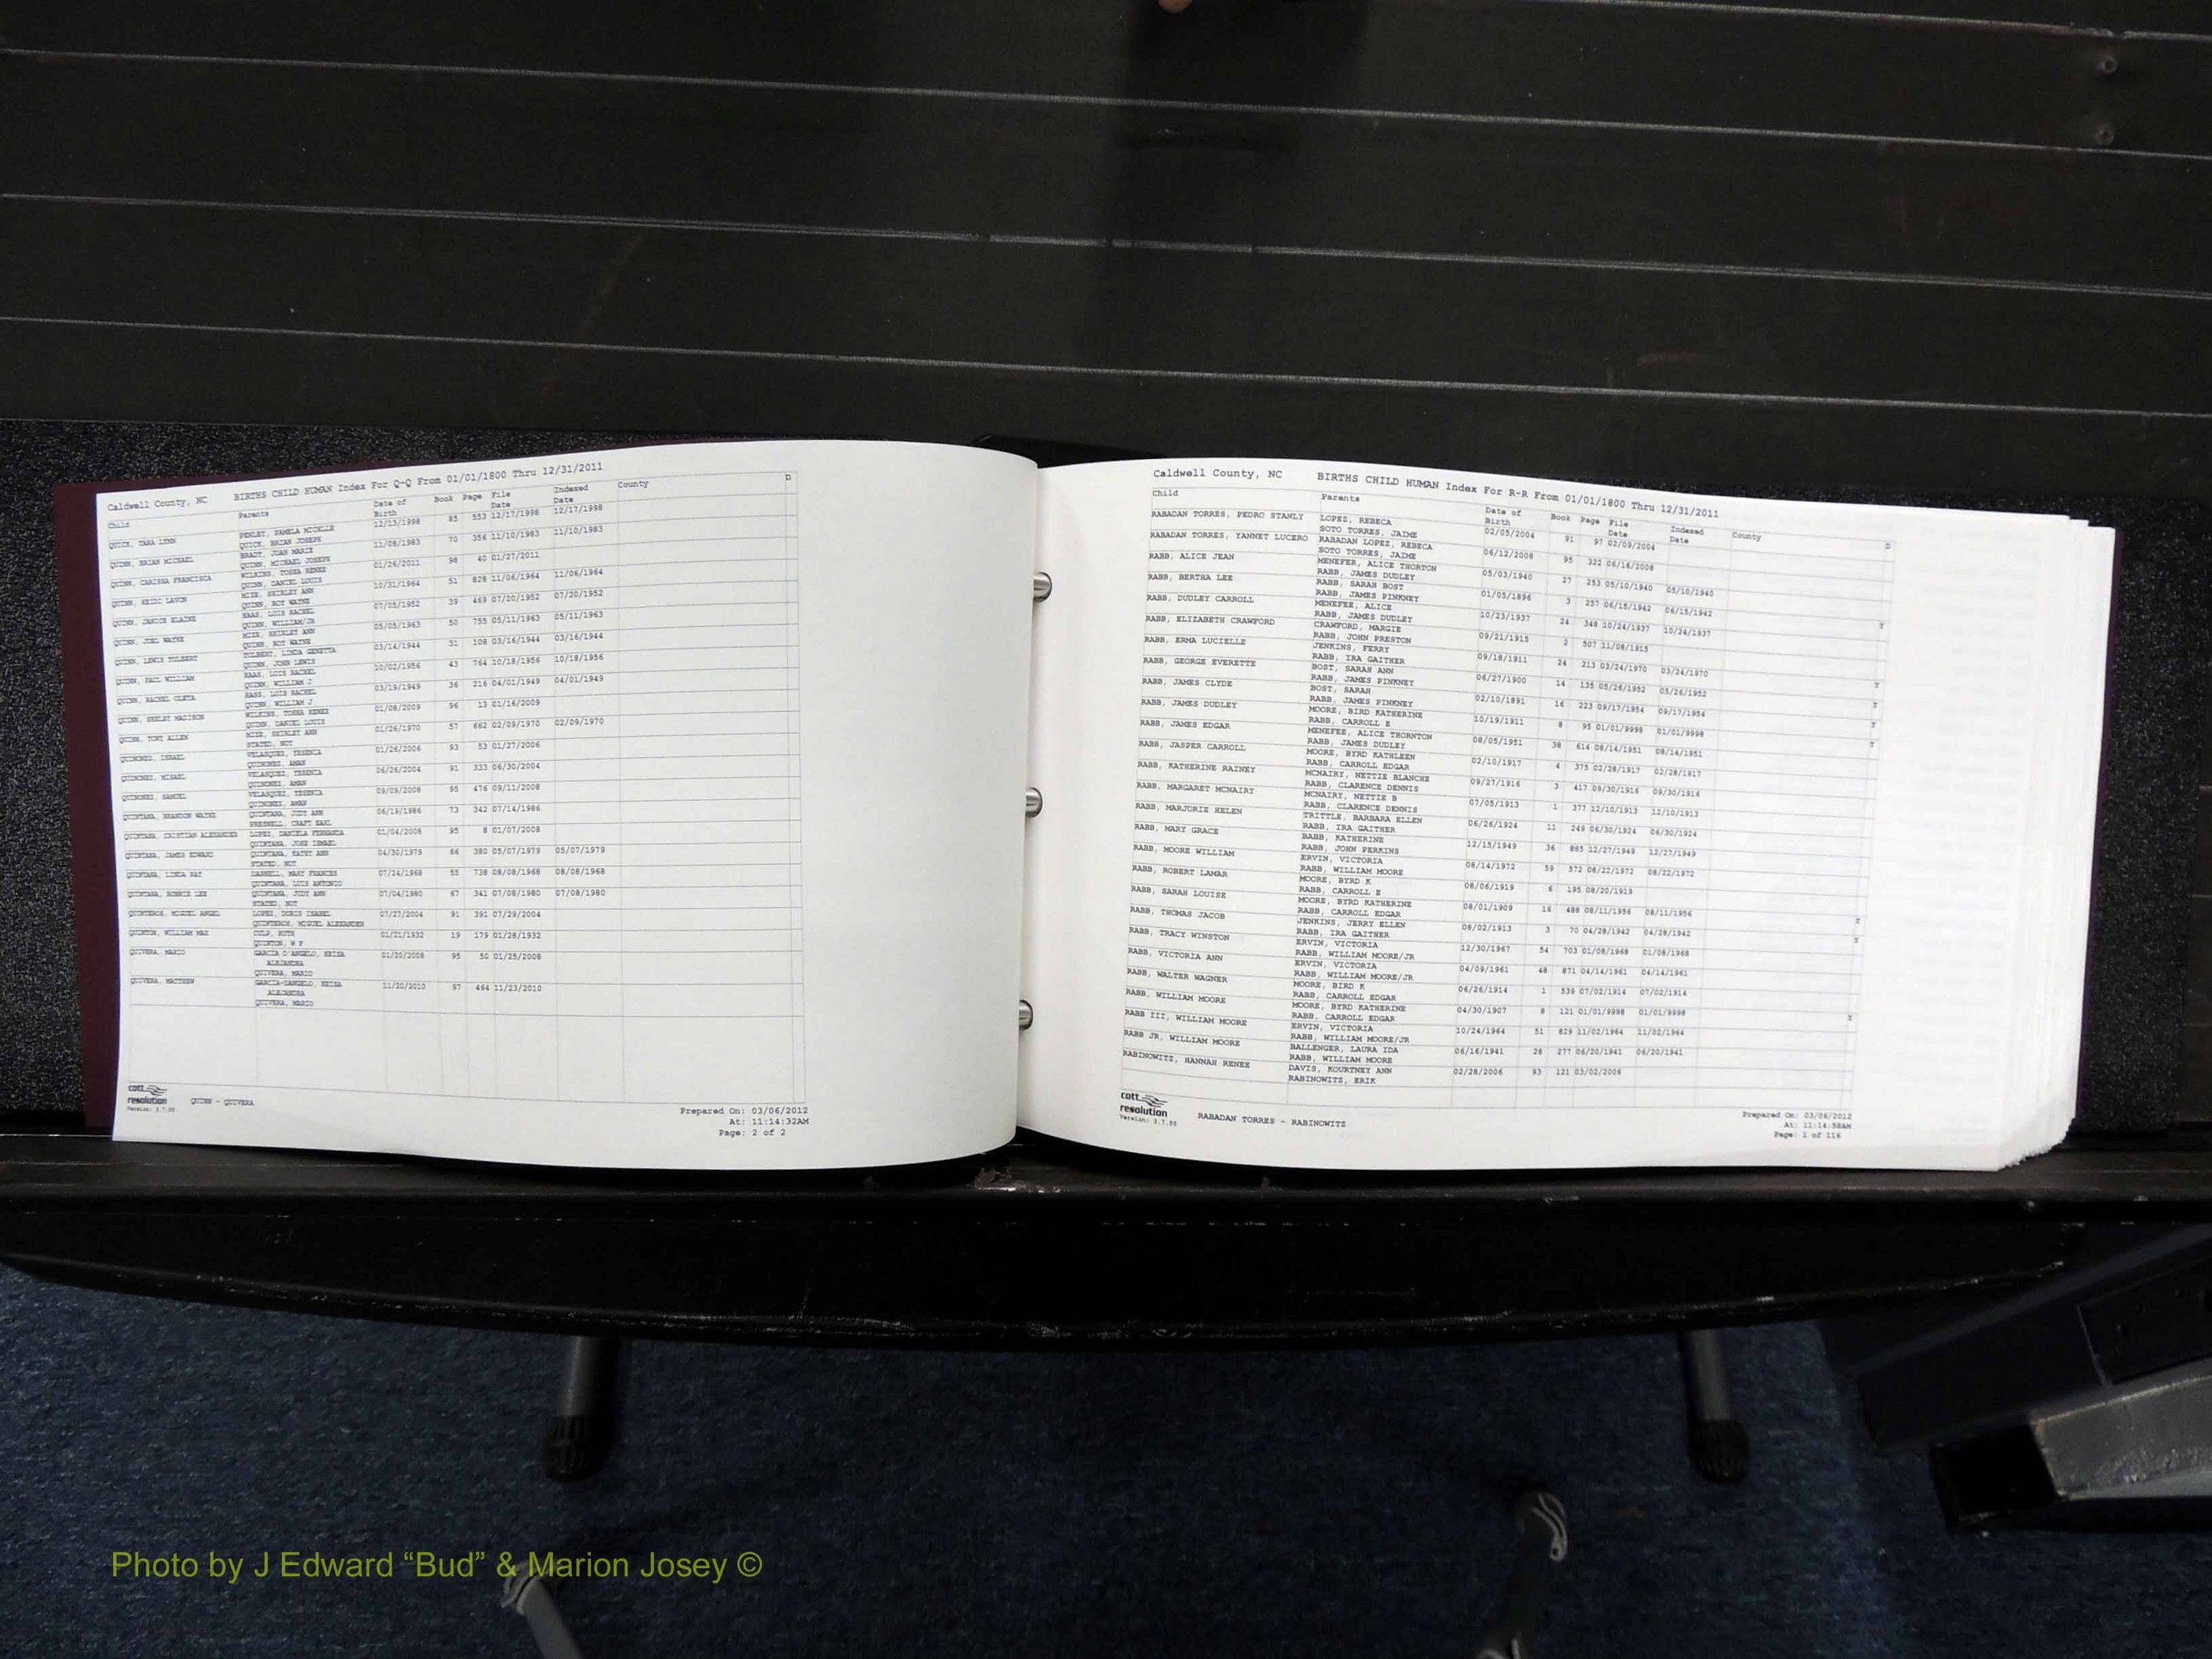 Caldwell County, NC BIRTHS CHILD HUMAN Index For Q-Q From 01/01/1800 Thru 12/31/2011
Child Parents Date of Birth Book Page File Date Indexed Date County D
QUICK, TARA LYNN PENLEY, PAMELA MICHELLE 12/13/1998 85 553 12/17/1998 12/17/1998
QUICK, BRIAN JOSEPH
QUINN, BRIAN MICHAEL BRADY, JOAN MARIE 11/08/1983 70 356 11/10/1983 11/10/1983
QUINN, MICHAEL JOSEPH
QUINN, CARISSA FRANCISCA WILKINS, TOSHA RENEE 01/26/2011 98 40 01/27/2011
QUINN, DANIEL LOUIS
QUINN, HEIDI LAVON MIZE, SHIRLEY ANN 10/31/1964 51 828 11/06/1964 11/06/1964
QUINN, ROY WAYNE
QUINN, JANICE ELAINE HAAS, LOIS RACHEL 07/05/1952 39 469 07/20/1952 07/20/1952
QUINN, WILLIAM/JR
QUINN, JOEL WAYNE MIZE, SHIRLEY ANN 05/05/1963 50 755 05/11/1963 05/11/1963
QUINN, ROY WAYNE
QUINN, LEWIS TOLBERT TOLBERT, LINDA GENETTA 03/14/1944 31 108 03/16/1944 03/16/1944
QUINN, JOHN LEWIS
QUINN, PAUL WILLIAM HAAS, LOIS RACHEL 10/02/1956 43 764 10/18/1956 10/18/1956
QUINN, WILLIAM J
QUINN, RACHEL OLETA HASS, LOIS RACHEL 03/19/1949 36 216 04/01/1949 04/01/1949
QUINN, WILLIAM J
QUINN, SHELBY MADISON WILKINS, TOSHA RENEE 01/08/2009 96 13 01/16/2009
QUINN, DANIEL LOUIS
QUINN, TONY ALLEN MIZE, SHIRLEY ANN 01/26/1970 57 662 02/09/1970 02/09/1970
STATED, NOT
QUINONEZ, ISRAEL VELASQUEZ, YESENIA 01/26/2006 93 53 01/27/2006
QUINONEZ, AMAN
QUINONEZ, MISAEL VELASQUEZ, YESENIA 06/26/2004 91 333 06/30/2004
QUINONEZ, AMAN
QUINONEZ, SAMUEL VELASQUEZ, YESENIA 09/09/2008 95 476 09/11/2008
QUINONEZ, AMAN
QUINTANA, BRANDON WAYNE QUINTANA, JUDY ANN 06/19/1986 73 342 07/14/1986
PRESNELL, CRAFT EARL
QUINTANA, CRISTIAN ALEXANDER LOPEZ, DANIELA FERNANDA 01/04/2008 95 8 01/07/2008
QUINTANA, JOSE ISMAEL
QUINTANA, JAMES EDWARD QUINTANA, KATHY ANN 04/30/1979 66 380 05/07/1979 05/07/1979
STATED, NOT
QUINTANA, LINDA RAY DARNELL, MARY FRANCES 07/24/1968 55 738 08/08/1968 08/08/1968
QUINTANA, LUIS ANTONIO
QUINTANA, RONNIE LEE QUINTANA, JUDY ANN 07/04/1980 67 341 07/08/1980 07/08/1980
STATED, NOT
QUINTEROS, MIGUEL ANGEL LOPEZ, DORIS ISABEL 07/27/2004 91 391 07/29/2004
QUINTEROS, MIGUEL ALEXANDER
QUINTON, WILLIAM MAX CULP, RUTH 01/21/1932 19 179 01/28/1932
QUINTON, W F
QUIVERA, MARIO GARCIA D'ANGELO, KEISA 01/20/2008 95 50 01/25/2008
ALEJANDRA
QUIVERA, MARIO
QUIVERA, MATTHEW GARCIA-DANGELO, KEISA 11/20/2010 97 464 11/23/2010
ALEJANDRA
QUIVERA, MARIO
cott
resolution
Version: 3.7.55
QUINN - QUIVERA
Prepared On: 03/06/2012
At: 11:14:32AM
Page: 2 of 2
Caldwell County, NC BIRTHS CHILD HUMAN Index For R-R From 01/01/1800 Thru 12/31/2011
Child Parents Date of Birth Book Page File Date Indexed Date County D
RABADAN TORRES, PEDRO STANLY LOPEZ, REBECA 02/05/2004 91 97 02/09/2004
SOTO TORRES, JAIME
RABADAN TORRES, YANNET LUCERO RABADAN LOPEZ, REBECA 06/12/2008 95 322 06/16/2008
SOTO TORRES, JAIME
RABB, ALICE JEAN MENEFER, ALICE THORTON 05/03/1940 27 253 05/10/1940 05/10/1940
RABB, JAMES DUDLEY
RABB, BERTHA LEE RABB, SARAH BOST 01/05/1896 3 257 06/15/1942 06/15/1942
RABB, JAMES PINKNEY
RABB, DUDLEY CARROLL MENEFEE, ALICE 10/23/1937 24 348 10/24/1937 10/24/1937 Y
RABB, JAMES DUDLEY
RABB, ELIZABETH CRAWFORD CRAWFORD, MARGIE 09/21/1915 2 507 11/08/1915
RABB, JOHN PRESTON
RABB, ERMA LUCIELLE JENKINS, FERRY 09/18/1911 24 213 03/24/1970 03/24/1970
RABB, IRA GAITHER
RABB, GEORGE EVERETTE BOST, SARAH ANN 06/27/1900 14 135 05/26/1952 05/26/1952 Y
RABB, JAMES PINKNEY
RABB, JAMES CLYDE BOST, SARAH 02/10/1891 16 223 09/17/1954 09/17/1954 Y
RABB, JAMES PINKNEY
RABB, JAMES DUDLEY MOORE, BIRD KATHERINE 10/19/1911 8 95 01/01/9998 01/01/9998 Y
RABB, CARROLL E
RABB, JAMES EDGAR MENEFEE, ALICE THORNTON 08/05/1951 38 614 08/14/1951 08/14/1951
RABB, JAMES DUDLEY
RABB, JASPER CARROLL MOORE, BYRD KATHLEEN 02/10/1917 4 375 02/28/1917 02/28/1917
RABB, CARROLL EDGAR
RABB, KATHERINE RAINEY MCNAIRY, NETTIE BLANCHE 09/27/1916 3 417 09/30/1916 09/30/1916
RABB, CLARENCE DENNIS
RABB, MARGARET MCNAIRY MCNAIRY, NETTIE B 07/05/1913 1 377 12/10/1913 12/10/1913
RABB, CLARENCE DENNIS
RABB, MARJORIE HELEN TRITTLE, BARBARA ELLEN 06/26/1924 11 249 06/30/1924 06/30/1924
RABB, IRA GAITHER
RABB, MARY GRACE BABB, KATHERINE 12/15/1949 36 885 12/27/1949 12/27/1949
RABB, JOHN PERKINS
RABB, MOORE WILLIAM ERVIN, VICTORIA 08/14/1972 59 572 08/22/1972 08/22/1972
RABB, WILLIAM MOORE
RABB, ROBERT LAMAR MOORE, BYRD K 08/06/1919 6 195 08/20/1919
RABB, CARROLL E
RABB, SARAH LOUISE MOORE, BYRD KATHERINE 08/01/1909 16 488 08/11/1956 08/11/1956 Y
RABB, CARROLL EDGAR
RABB, THOMAS JACOB JENKINS, JERRY ELLEN 08/02/1913 3 70 04/28/1942 04/28/1942 Y
RABB, IRA GAITHER
RABB, TRACY WINSTON ERVIN, VICTORIA 12/30/1967 54 703 01/08/1968 01/08/1968
RABB, WILLIAM MOORE/JR
RABB, VICTORIA ANN ERVIN, VICTORIA 04/09/1961 48 871 04/14/1961 04/14/1961
RABB, WILLIAM MOORE/JR
RABB, WALTER WAGNER MOORE, BIRD K 06/26/1914 1 539 07/02/1914 07/02/1914
RABB, CARROLL EDGAR
RABB, WILLIAM MOORE MOORE, BYRD KATHERINE 04/30/1907 8 121 01/01/9998 01/01/9998 Y
RABB, CARROLL EDGAR
RABB III, WILLIAM MOORE ERVIN, VICTORIA 10/24/1964 51 829 11/02/1964 11/02/1964
RABB, WILLIAM MOORE/JR
RABB JR, WILLIAM MOORE BALLENGER, LAURA IDA 06/16/1941 28 277 06/20/1941 06/20/1941
RABB, WILLIAM MOORE
RABINOWITZ, HANNAH RENEE DAVIS, KOURTNEY ANN 02/28/2006 93 121 03/02/2006
RABINOWITZ, ERIK
cott
resolution
Version: 3.7.55
RABADAN TORRES - RABINOWITZ
Prepared On: 03/06/2012
At: 11:14:58AM
Page: 1 of 116
Photo by J Edward “Bud” & Marion Josey ©